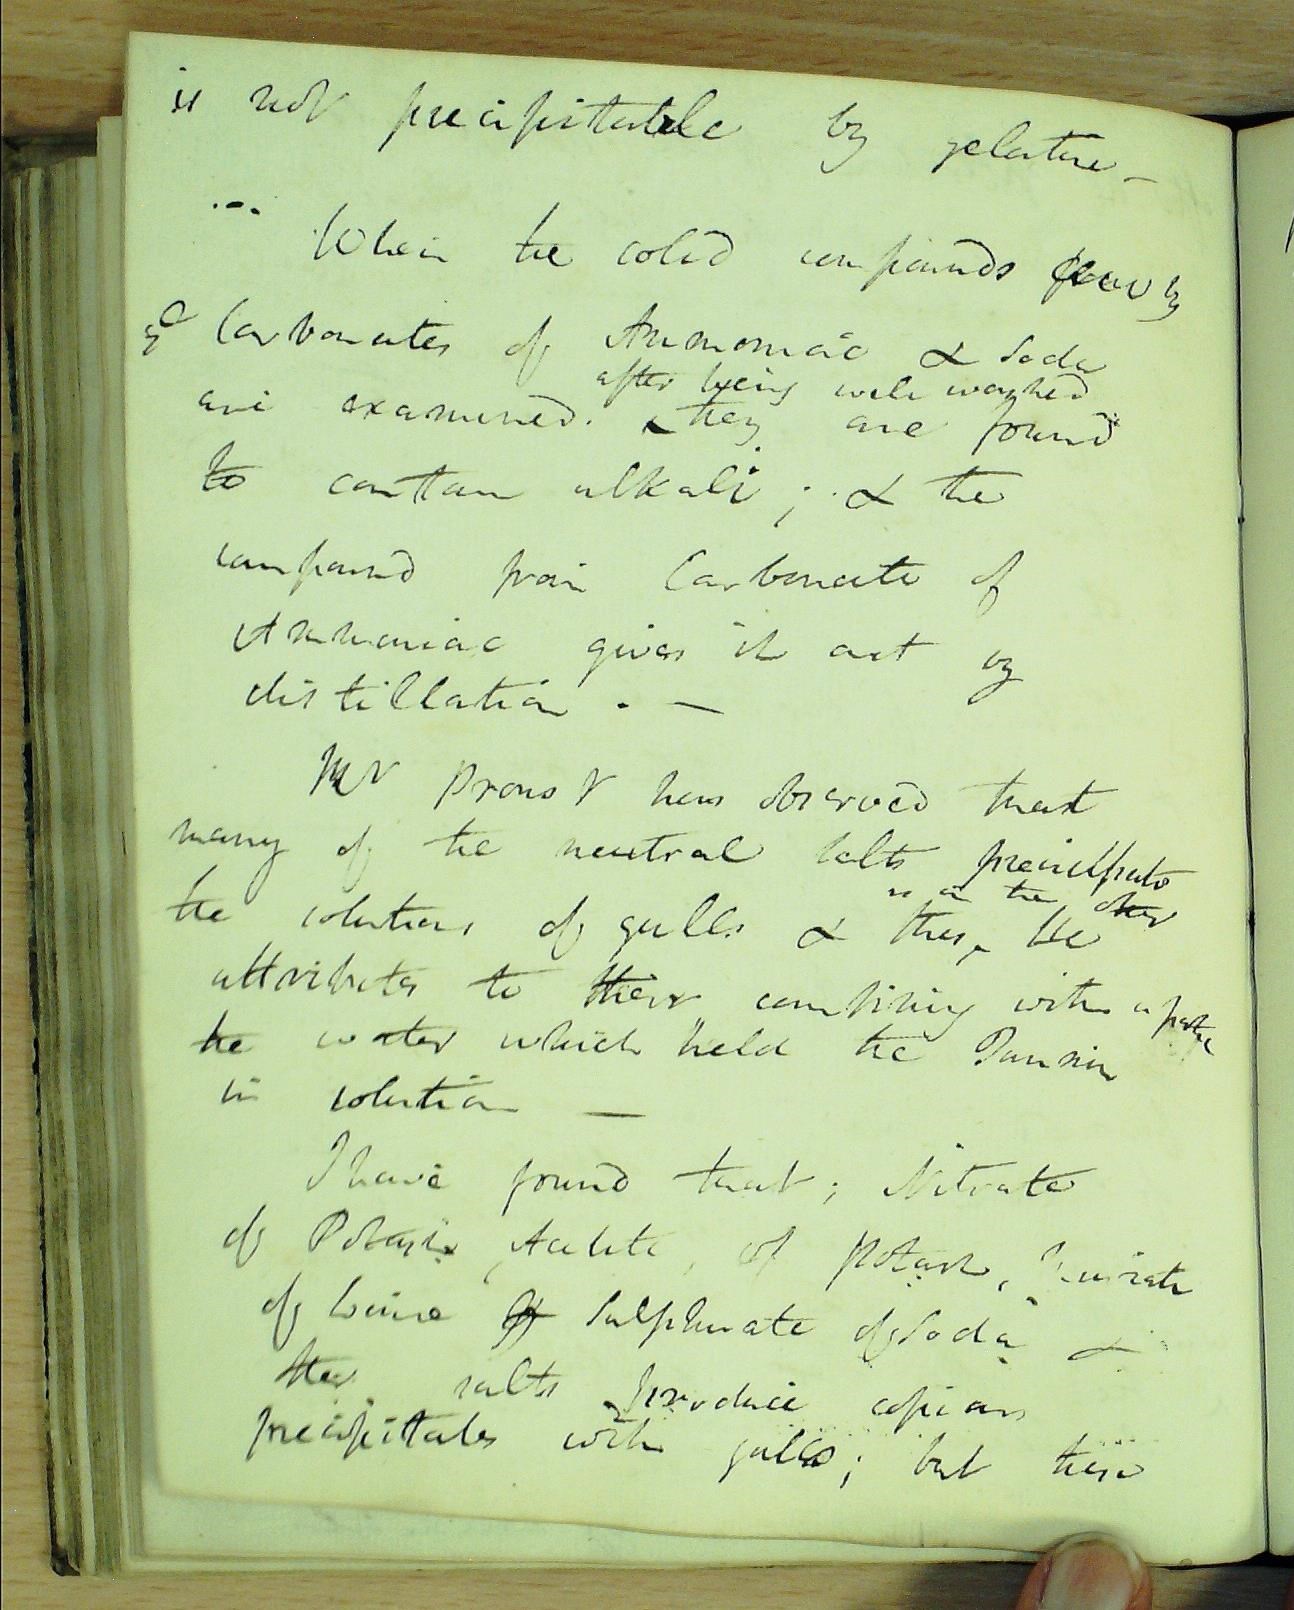 is not precipitable by gelatine –
When the solid compounds
Carbonates of Ammoniac & Soda
after being well washed
are examined. they are found
to contain alkali; & the
compound from Carbonate of
Ammoniac gives it out by
distillation. —
Mr Proust has observed that
many of the neutral salts precipitate
the solutions of galls & this, He
attributes to their combining with a part of
the water which held the Tannin
in solution —
I have found that; Nitrate
of Potash, Acetite, of Potash, Muriate
of Lime Sulphurate of Soda &
other salts produce copious
precipitates with galls; but these